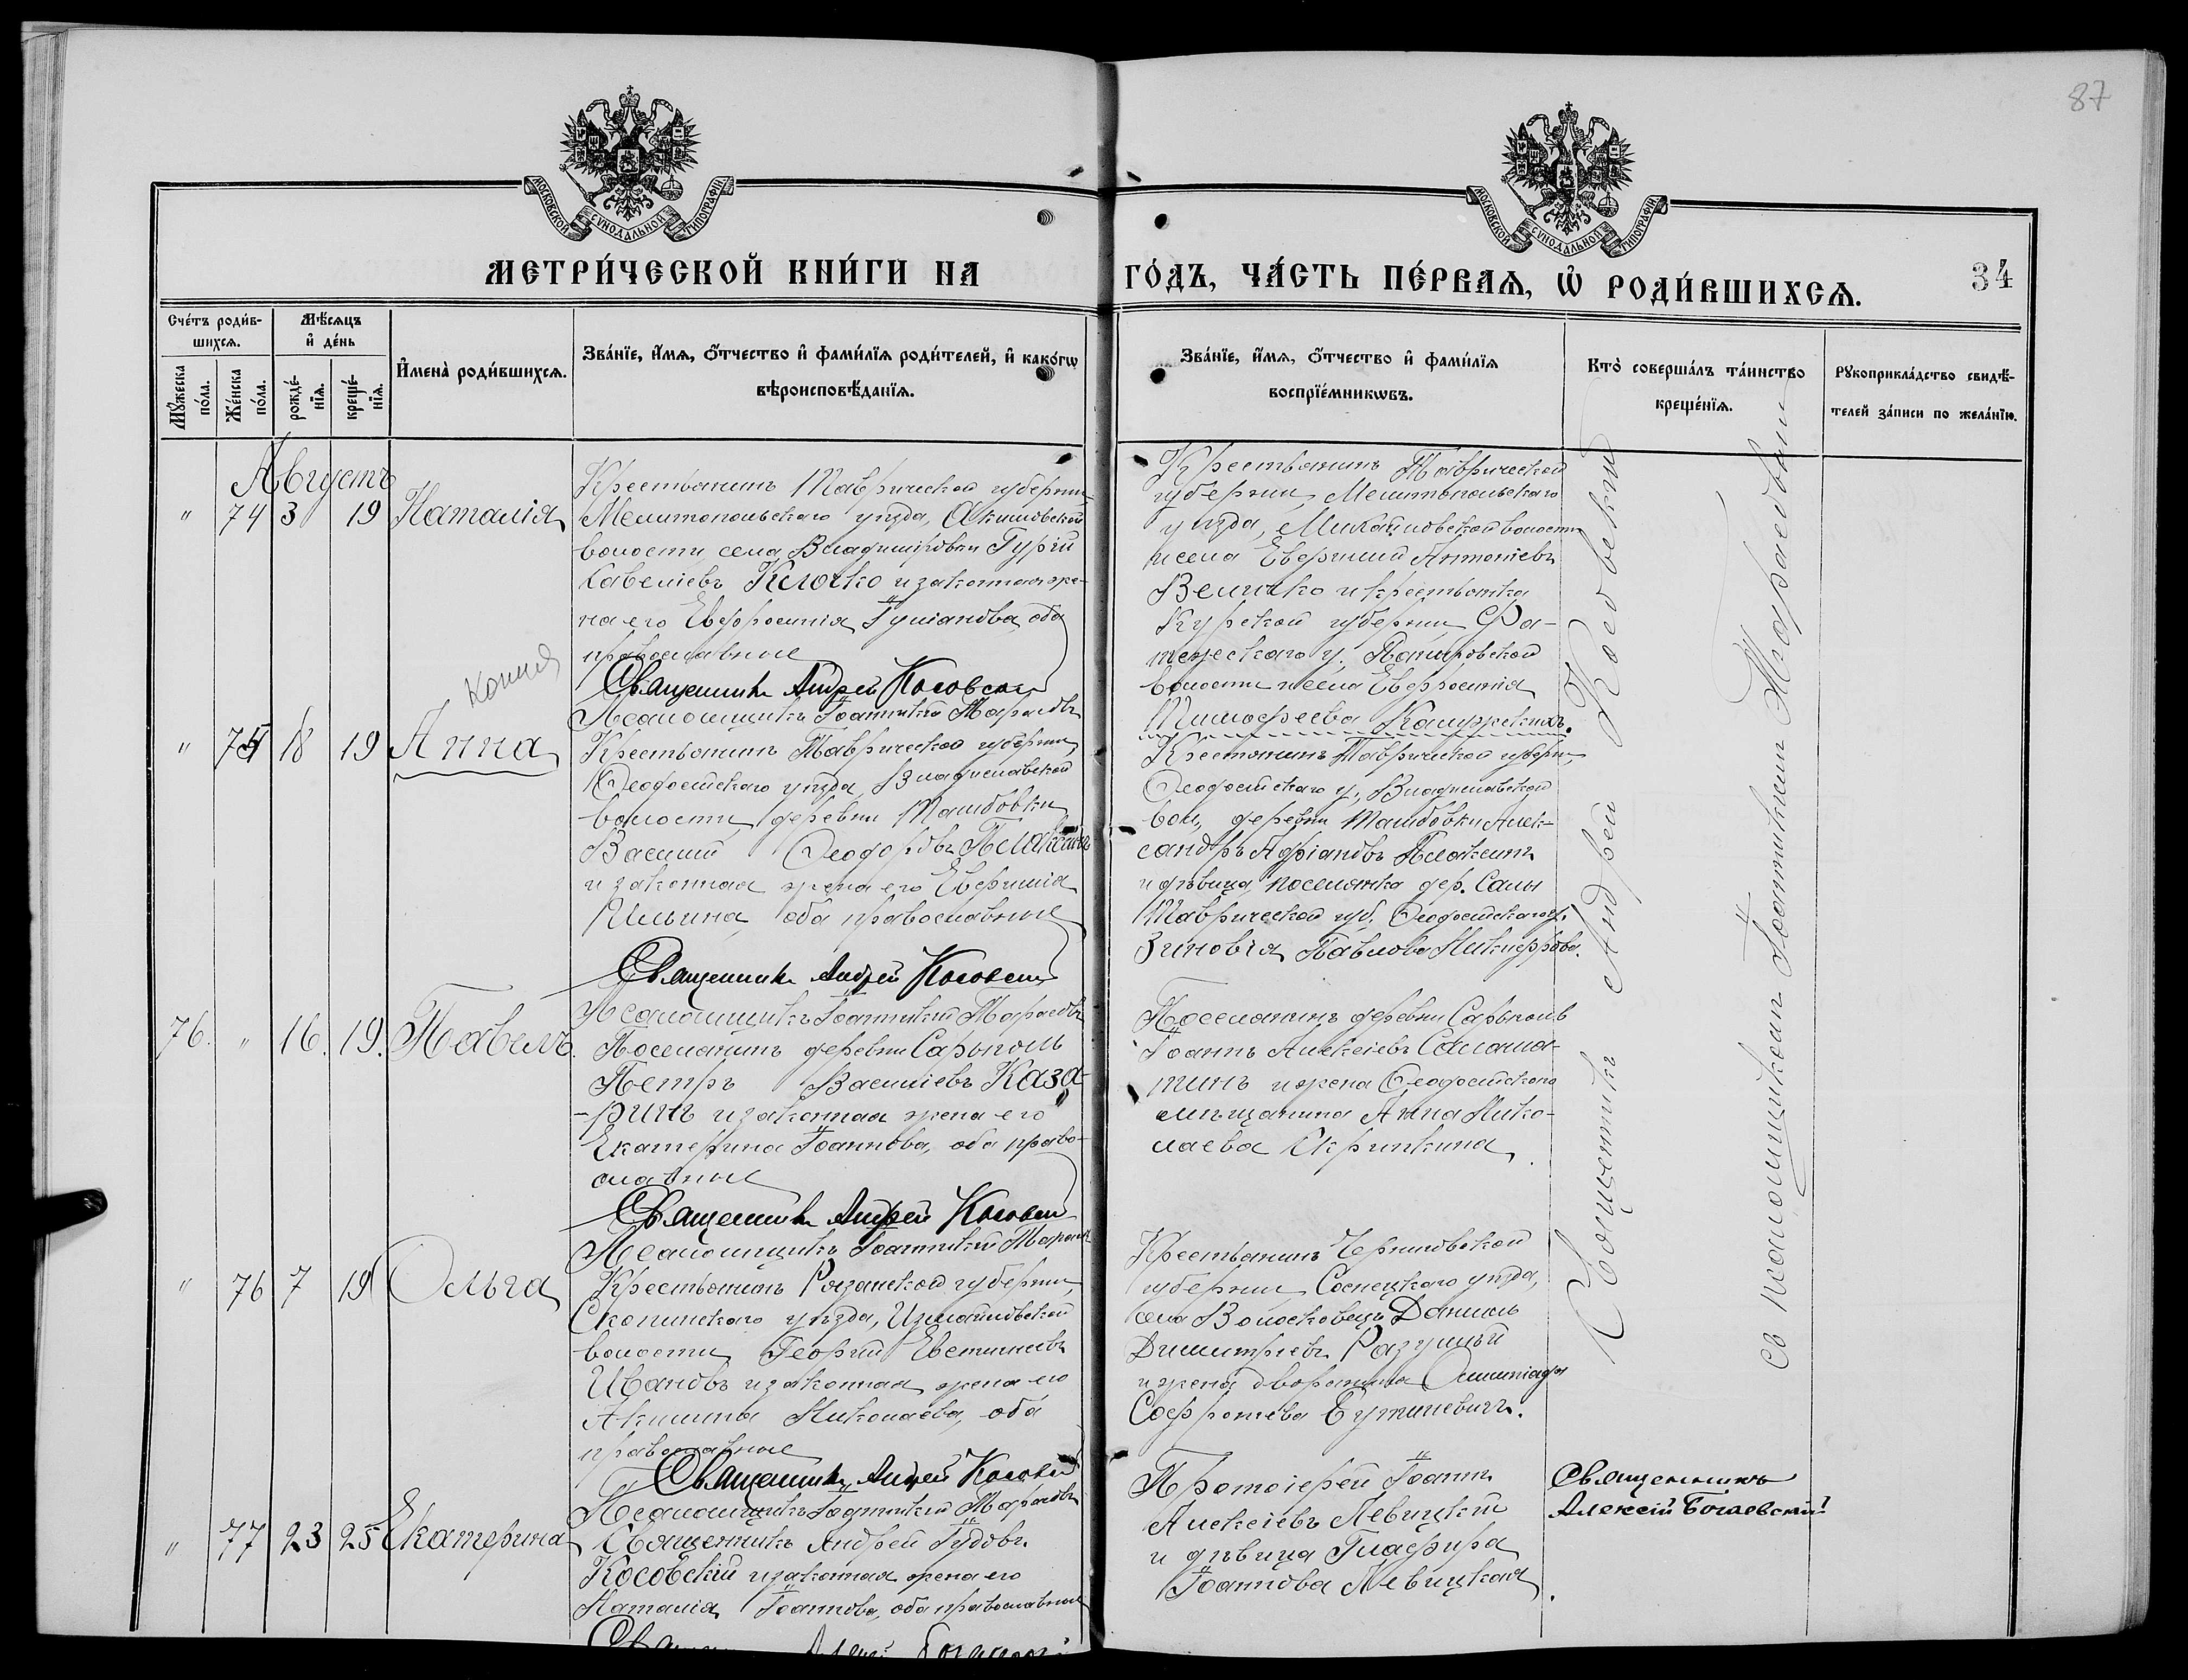 87
МОСКОВСКОЙ СУНОДАЛЬНОЙ ТИПОГРАФІИ
МОСКОВСКОЙ СУНОДАЛЬНОЙ ТИПОГРАФІИ
МЕТРИ́ЧЕСКОЙ КНИ́ГИ НА
ГО́ДЪ, ЧА́СТЬ ПЕ́РВАѦ, Ѡ҆ РОДИ́ВШИХСѦ.
34
Сче́тъ роди́в-
шихсѧ.
Мꙋ́жеска
по́ла.
Же́нска
по́ла.
Мѣ́сѧцъ
и҆ де́нь
рожде́-
нїѧ.
креще́-
нїѧ.
И҆мена̀ роди́вшихсѧ.
Зва́нїе, и҆́мѧ, ѻ҆́тчество и҆ фами́лїѧ роди́телей, и҆ како́гѡ
вѣроисповѣ́данїѧ.
Зва́нїе, и҆́мѧ, ѻ҆́тчество и҆ фами́лїѧ
воспрїе́мникѡвъ.
Кто̀ соверша́лъ та́инство
креще́нїѧ.
Рꙋкоприкла́дство свидѣ́-
телей за́писи по жела́нїю.
Августъ
" 74 3 19 Наталія
Крестьянинъ Таврической губерніи,
Мелитопольскаго уѣзда, Акимовской
волости, села Владиміровки Гурій
Савеліевъ Клочко и законная же-
на его Евфросинія Гуліанова, оба
православные
Священникъ Андрей Косовскій
Псаломщикъ Іоанникій Тарасовъ
Крестьянинъ Таврической
губерніи, Мелитопольскаго
уѣзда, Михайловской волости
и села Евфимій Антоніевъ
Величко и крестьянка
Курской губерніи, Фа-
тежскаго у.
волости и села Евфросинія
Тимофеева
копия
" 75 18 19 Анна
Крестьянинъ Таврической губерніи
Ѳеодосійскаго уѣзда, Владиславской
волости, деревни Тамбовки
Василій Ѳеодоровъ Плаксинъ
и законная жена его Евфимія
Ильина, оба православные
Священникъ Андрей Косовскій
Псаломщикъ Іоанникій Тарасовъ
Крестьянинъ Таврической губерн.,
Ѳеодосійскаго у., Владиславской
вол., деревни Тамбовки Алек-
сандръ Адріановъ Плаксинъ
и дѣвица, поселянка дер. Салы
Таврической губ. Ѳеодосійскаго у.
Зиновія Павлова Никифорова.
76. " 16. 19. Павелъ.
Поселянинъ деревни Сарыголь
Петръ Василіевъ Каза-
-ринъ и законная жена его
Екатерина Іоаннова, оба право-
славные
Священникъ Андрей Косовскій
Псаломщикъ Іоанникій Тарасовъ
Поселянинъ деревни Сарыголь
Іоаннъ Алексіевъ Салама-
тинъ и жена Ѳеодосійскаго
мѣщанина Анна Нико-
лаева Скрипкина.
" 76 7 19 Ольга
Крестьянинъ Рязанской губерніи,
Скопинскаго уѣзда, Измайловской
волости Георгій Евстигнеевъ
Ивановъ и законная жена его
Акилина Николаева, оба
православные
Священникъ Андрей Косовскій
Псаломщикъ Іоанникій Тарасовъ
Крестьянинъ Черниговской
губерніи Сосницкаго уѣзда,
села Волосковецъ Даніилъ
Димитріевъ Разумный
и жена дворянина Олимпіада
Софроніева
" 77 23 25 Екатерина
Священникъ Андрей Гудовъ
Косовскій и законная жена его
Наталія Іоаннова, оба православные
Протоіерей Іоаннъ
Алексіевъ Левицкій
и дѣвица Глафира
Іоаннова Левицкая.
Священникъ Андрей Косовскій
съ псаломщикомъ Іоанникіемъ Тарасовымъ
Священникъ
Алексій Богаевскій